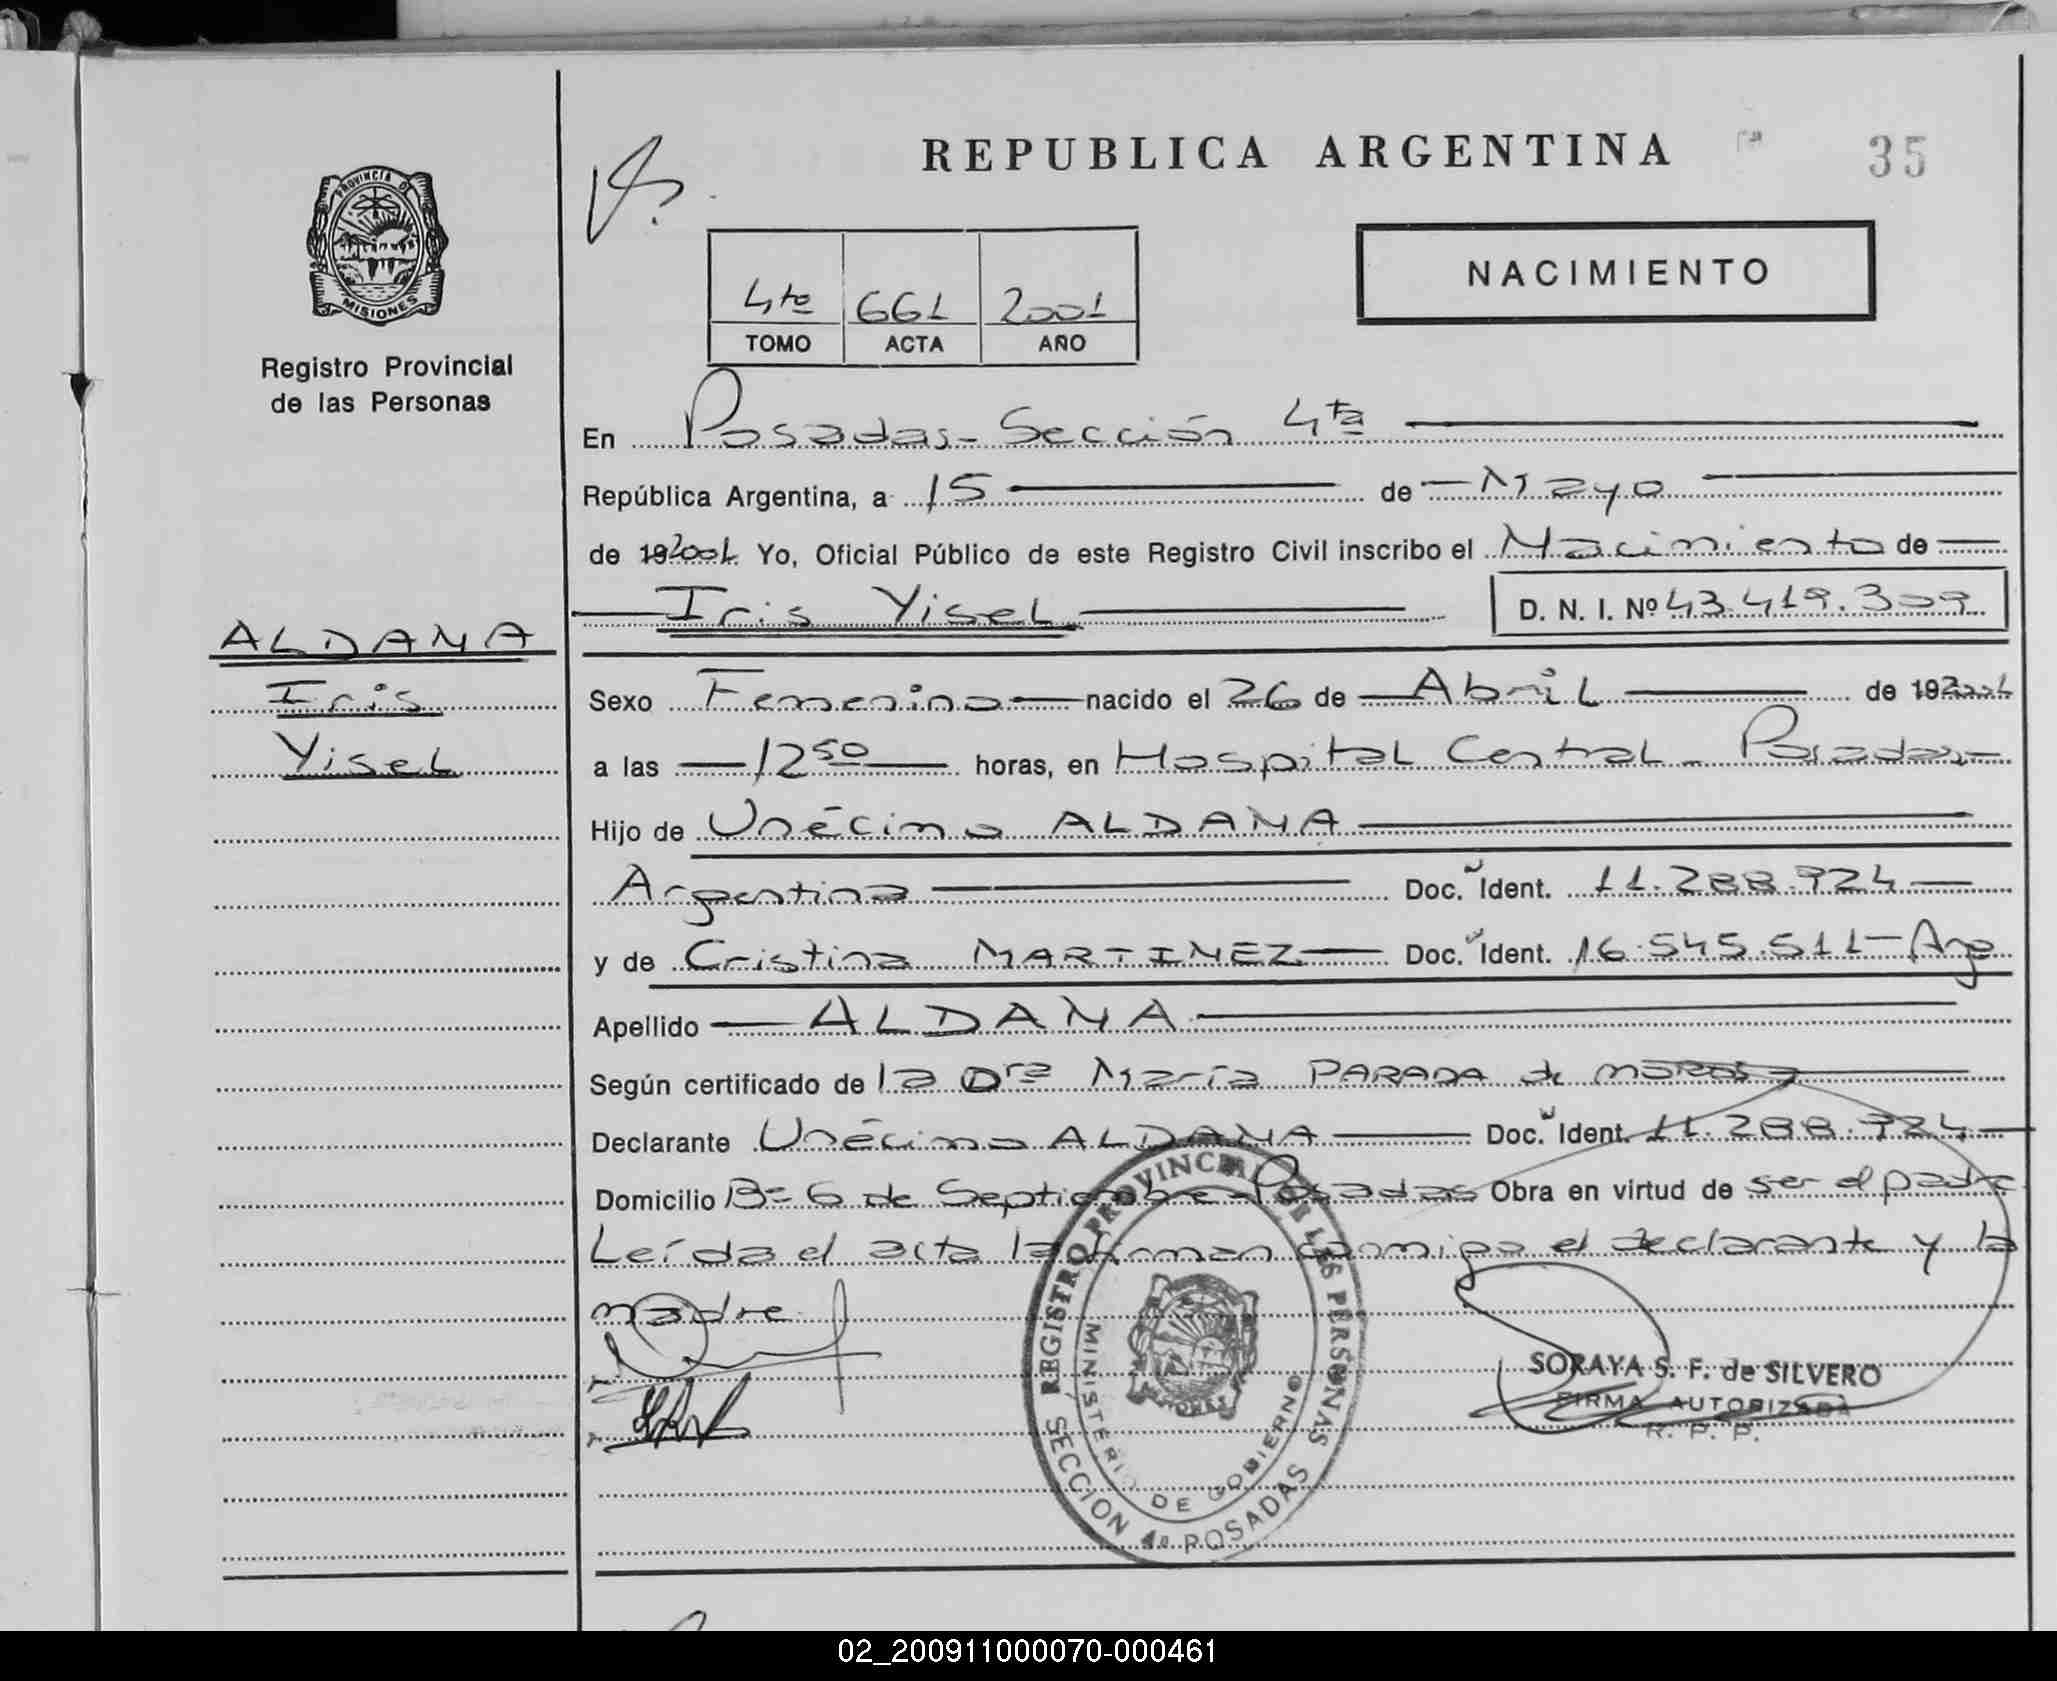 REPUBLICA ARGENTINA
35
PROVINCIA DE
MISIONES
Registro Provincial
de las Personas
4to 661 2001
TOMO ACTA AÑO
NACIMIENTO
En Posadas - Sección 4ta
República Argentina, a 15 de Mayo
de 192001 Yo, Oficial Público de este Registro Civil inscribo el Nacimiento de
Iris Yisel
D. N. I. Nº 43.419.309
ALDANA
Iris
Yisel
Sexo Femenino nacido el 26 de Abril de 192001
a las 12 50 horas, en Hospital Central - Posadas
Hijo de Unécimo ALDANA
Argentina Doc. Ident. 11.288.924
y de Cristina MARTINEZ Doc. Ident. 16.545.511 - Arg
Apellido ALDANA
Según certificado de la Dra María PARADA de
Declarante Unécimo ALDANA Doc. Ident. 11.288.924
Domicilio Bº 6 de Septiembre - Posadas Obra en virtud de ser el padre
Leída el acta la firman conmigo el declarante y la
madre
REGISTRO PROVINCIAL DE LAS PERSONAS
MINISTERIO DE GOBIERNO
SECCION 4a POSADAS
SORAYA S. F. de SILVERO
FIRMA AUTORIZADA
R. P. P.
02_200911000070-000461